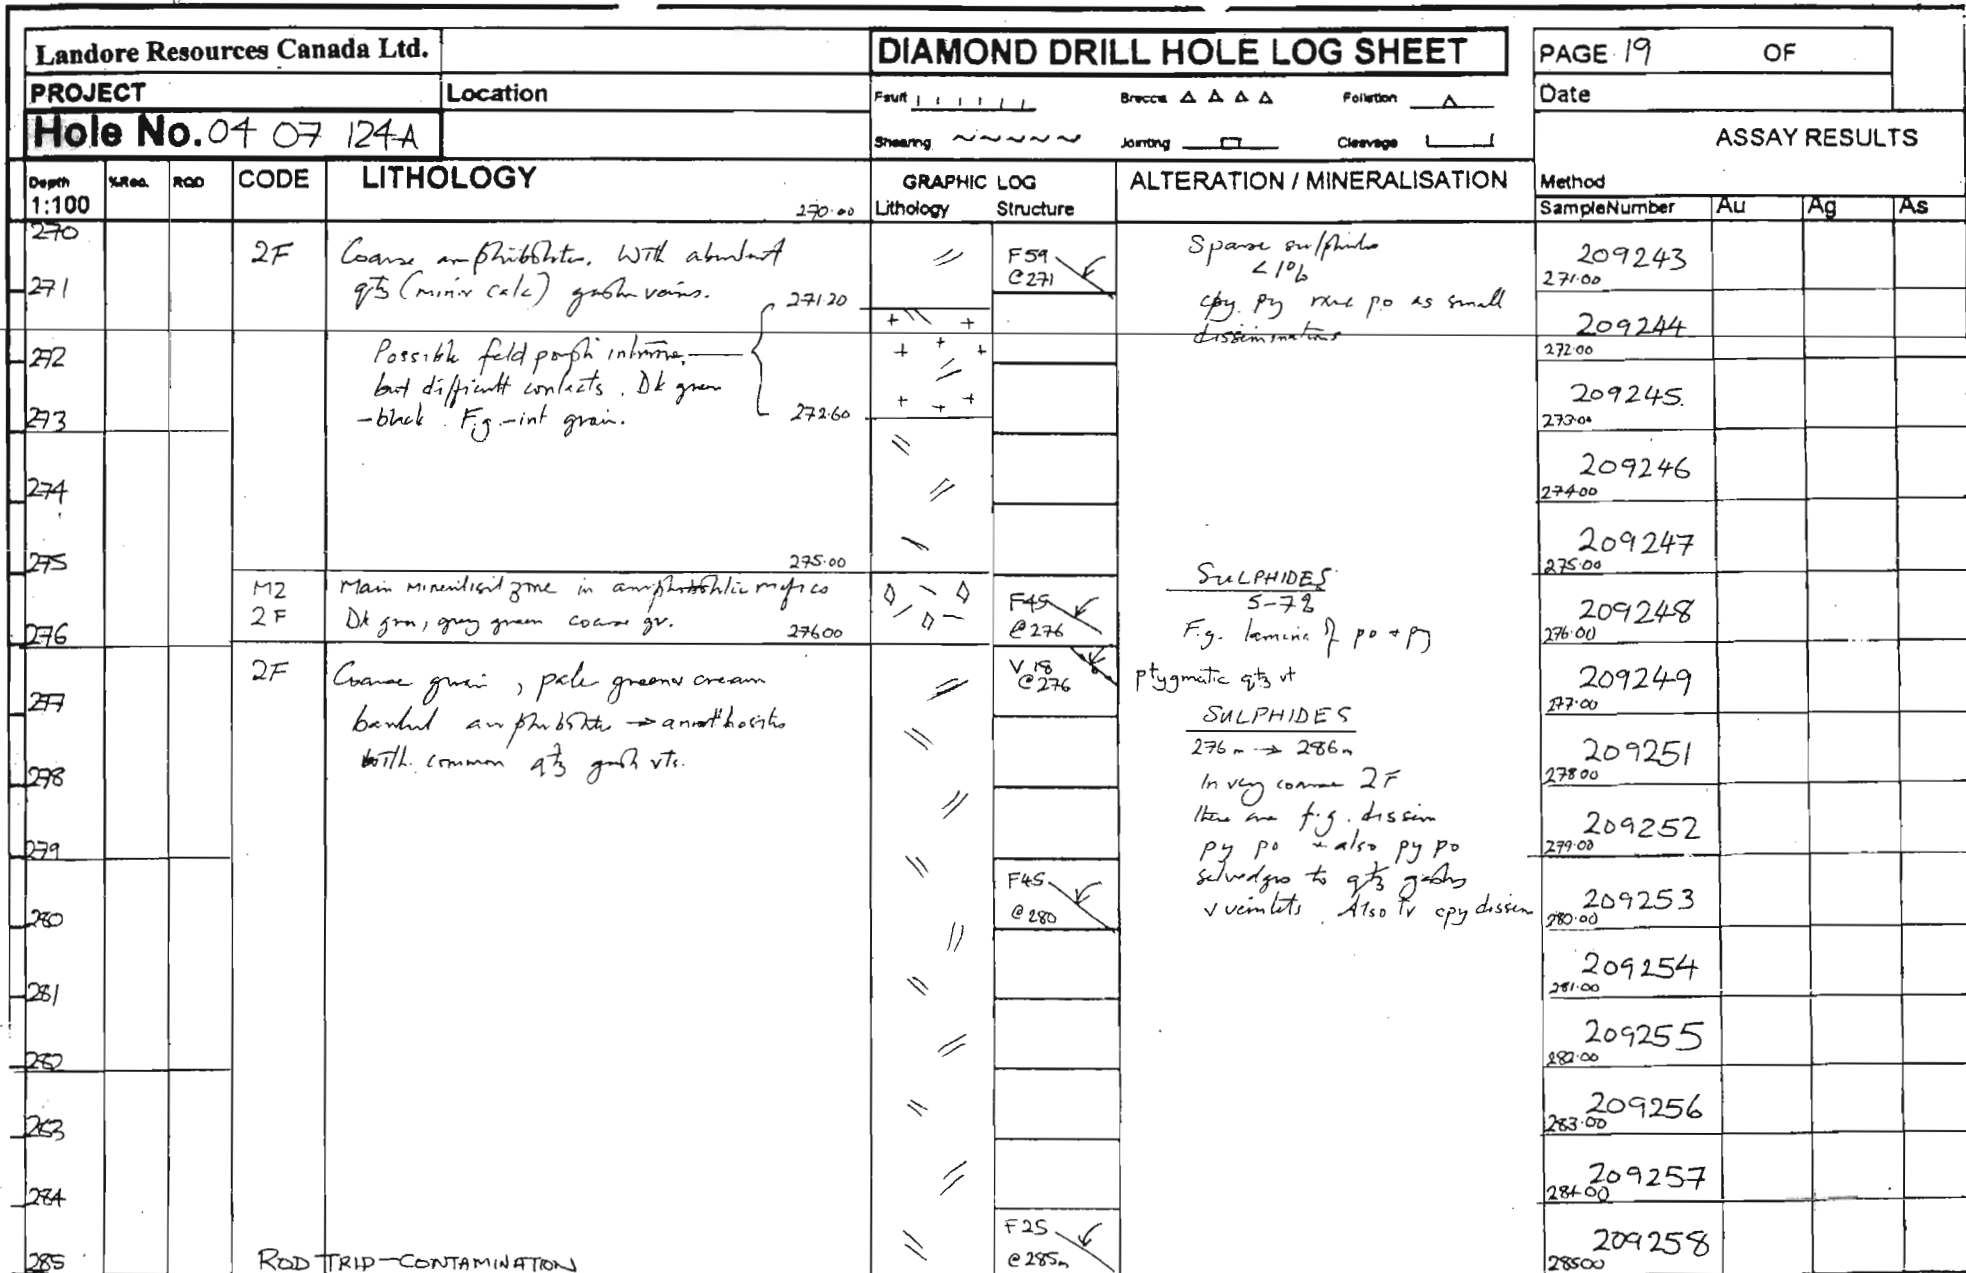 Landore Resources Canada Ltd.
DIAMOND DRILL HOLE LOG SHEET
PAGE 19 OF
PROJECT
Location
Fault
Breccia
Foliation
Date
Hole No. 04 07 124A
Shearing
Jointing
Cleavage
ASSAY RESULTS
Depth
1:100
%Rec.
RQD
CODE
LITHOLOGY
270.00
GRAPHIC LOG
Lithology Structure
ALTERATION / MINERALISATION
Method
SampleNumber Au Ag As
270
271
272
273
274
275
276
277
278
279
280
281
282
283
284
285
2F
Coarse amphibolites. With abundant
qtz (minor calc) gash veins.
271.20
Possible feld porph intrusive,
but difficult contacts. Dk green
-black. F.g.-int grain.
272.60
275.00
M2
2F
Main mineralised zone in amphibolitic mafics
Dk grn, grey green coarse gr.
276.00
2F
Coarse grain, pale green + cream
banded amphibolites → anorthosites
with common qtz gash vts.
ROD TRIP-CONTAMINATION
F59
@271
F45
@276
V18
@276
F45
@280
F25
@285m
Sparse sulphides
<1%
cpy. py rare po as small
disseminations
SULPHIDES
5-7%
F.g. lamina of po + py
ptygmatic qtz vt
SULPHIDES
276m → 286m
In very coarse 2F
there are f.g. dissem
py po + also py po
selvedges to qtz gashes
v veinlets. Also tr cpy dissem
209243
271.00
209244
272.00
209245.
273.00
209246
274.00
209247
275.00
209248
276.00
209249
277.00
209251
278.00
209252
279.00
209253
280.00
209254
281.00
209255
282.00
209256
283.00
209257
284.00
209258
285.00